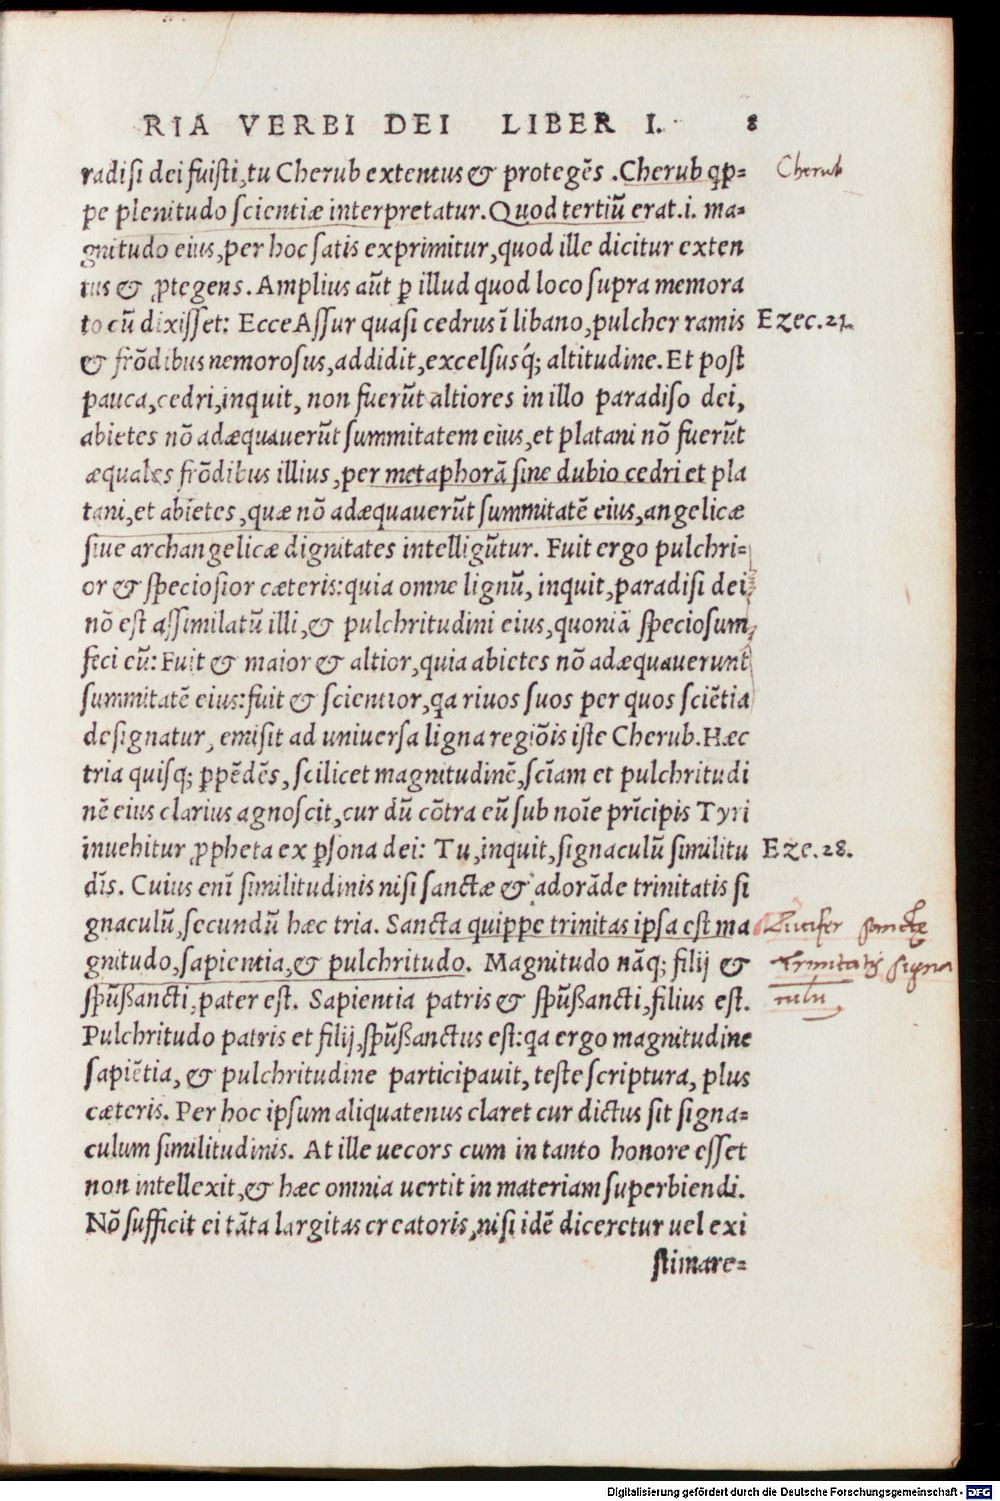 RIA VERBI DEI LIBER I. 8
radisi dei fuisti, tu Cherub extentus & protegẽs. Cherub qp-
pe plenitudo scientiæ interpretatur. Quod tertiũ erat .i. ma-
gnitudo eius, per hoc satis exprimitur, quod ille dicitur exten
tus & ꝓtegens. Amplius aũt ꝑ illud quod loco supra memora
to cũ dixisset: Ecce Assur quasi cedrus ĩ libano, pulcher ramis
& frõdibus nemorosus, addidit, excelsusq́; altitudine. Et post
pauca, cedri, inquit, non fuerũt altiores in illo paradiso dei,
abietes nõ adæquauerũt summitatem eius, et platani nõ fuerũt
æquales frõdibus illius, per metaphorã sine dubio cedri et pla
tani, et abietes, quæ nõ adæquauerũt summitatẽ eius, angelicæ
siue archangelicæ dignitates intelligũtur. Fuit ergo pulchri-
or & speciosior cæteris: quia omne lignũ, inquit, paradisi dei
nõ est assimilatũ illi, & pulchritudini eius, quoniã speciosum
feci eũ: Fuit & maior & altior, quia abietes nõ adæquauerunt
summitatẽ eius: fuit & scientior, qa riuos suos per quos sciẽtia
designatur, emisit ad uniuersa ligna regiõis iste Cherub. Hæc
tria quisq; ꝑpẽdẽs, scilicet magnitudinẽ, scĩam et pulchritudi
nẽ eius clarius agnoscit, cur dũ cõtra eũ sub noĩe prĩcipis Tyri
inuehitur ꝓpheta ex ꝑsona dei: Tu, inquit, signaculũ similitu
dĩs. Cuius enĩ similitudinis nisi sanctæ & adorãde trinitatis si
gnaculũ, secundũ hæc tria. Sancta quippe trinitas ipsa est ma
gnitudo, sapientia, & pulchritudo. Magnitudo nãq; filij &
spũßancti, pater est. Sapientia patris & spũßancti, filius est.
Pulchritudo patris et filij, spũßanctus est: qa ergo magnitudine
sapiẽtia, & pulchritudine participauit, teste scriptura, plus
cæteris. Per hoc ipsum aliquatenus claret cur dictus sit signa-
culum similitudinis. At ille uecors cum in tanto honore esset
non intellexit, & hæc omnia uertit in materiam superbiendi.
Nõ sufficit ei tãta largitas creatoris, nisi idẽ diceretur uel exi
stimare-
Cherub
Ezec. 21.
Eze. 28.
Lucifer sancte
Trinitatis signa
culu
Digitalisierung gefördert durch die Deutsche Forschungsgemeinschaft - DFG